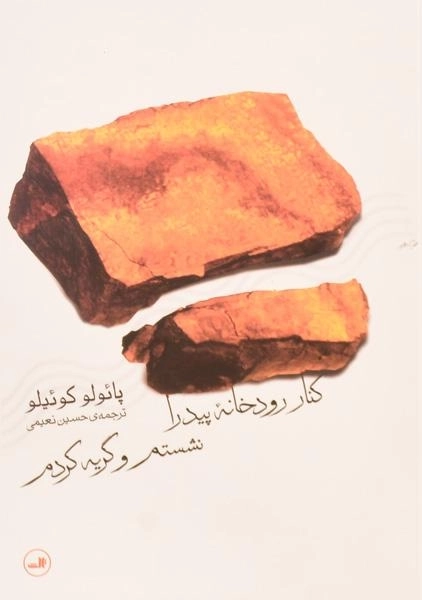 کنار رودخانهٔ پیدرا
نشستم و گریه کردم
پائولو کوئیلو
ترجمه‌ی حسین نعیمی
ثالث